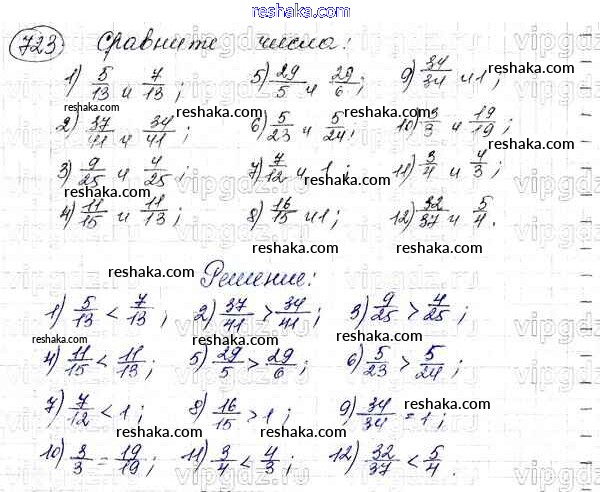 reshaka.com
723 Сравните числа:
1) 5/13 и 7/13; 5) 29/5 и 29/6; 9) 34/34 и 1;
reshaka.com reshaka.com reshaka.com
2) 37/41 и 34/41; 6) 5/23 и 5/24; 10) 3/3 и 19/19;
3) 9/25 и 4/25; 7) 7/12 и 1; 11) 3/4 и 4/3;
reshaka.com reshaka.com reshaka.com
4) 11/15 и 11/13; 8) 16/15 и 1; 12) 32/37 и 5/4.
reshaka.com reshaka.com
Решение:
reshaka.com
1) 5/13 < 7/13; 2) 37/41 > 34/41; 3) 9/25 > 4/25;
reshaka.com reshaka.com reshaka.com
4) 11/15 < 11/13; 5) 29/5 > 29/6; 6) 5/23 > 5/24;
reshaka.com reshaka.com
7) 7/12 < 1; 8) 16/15 > 1; 9) 34/34 = 1;
reshaka.com reshaka.com
10) 3/3 = 19/19; 11) 3/4 < 4/3; 12) 32/37 < 5/4.
reshaka.com